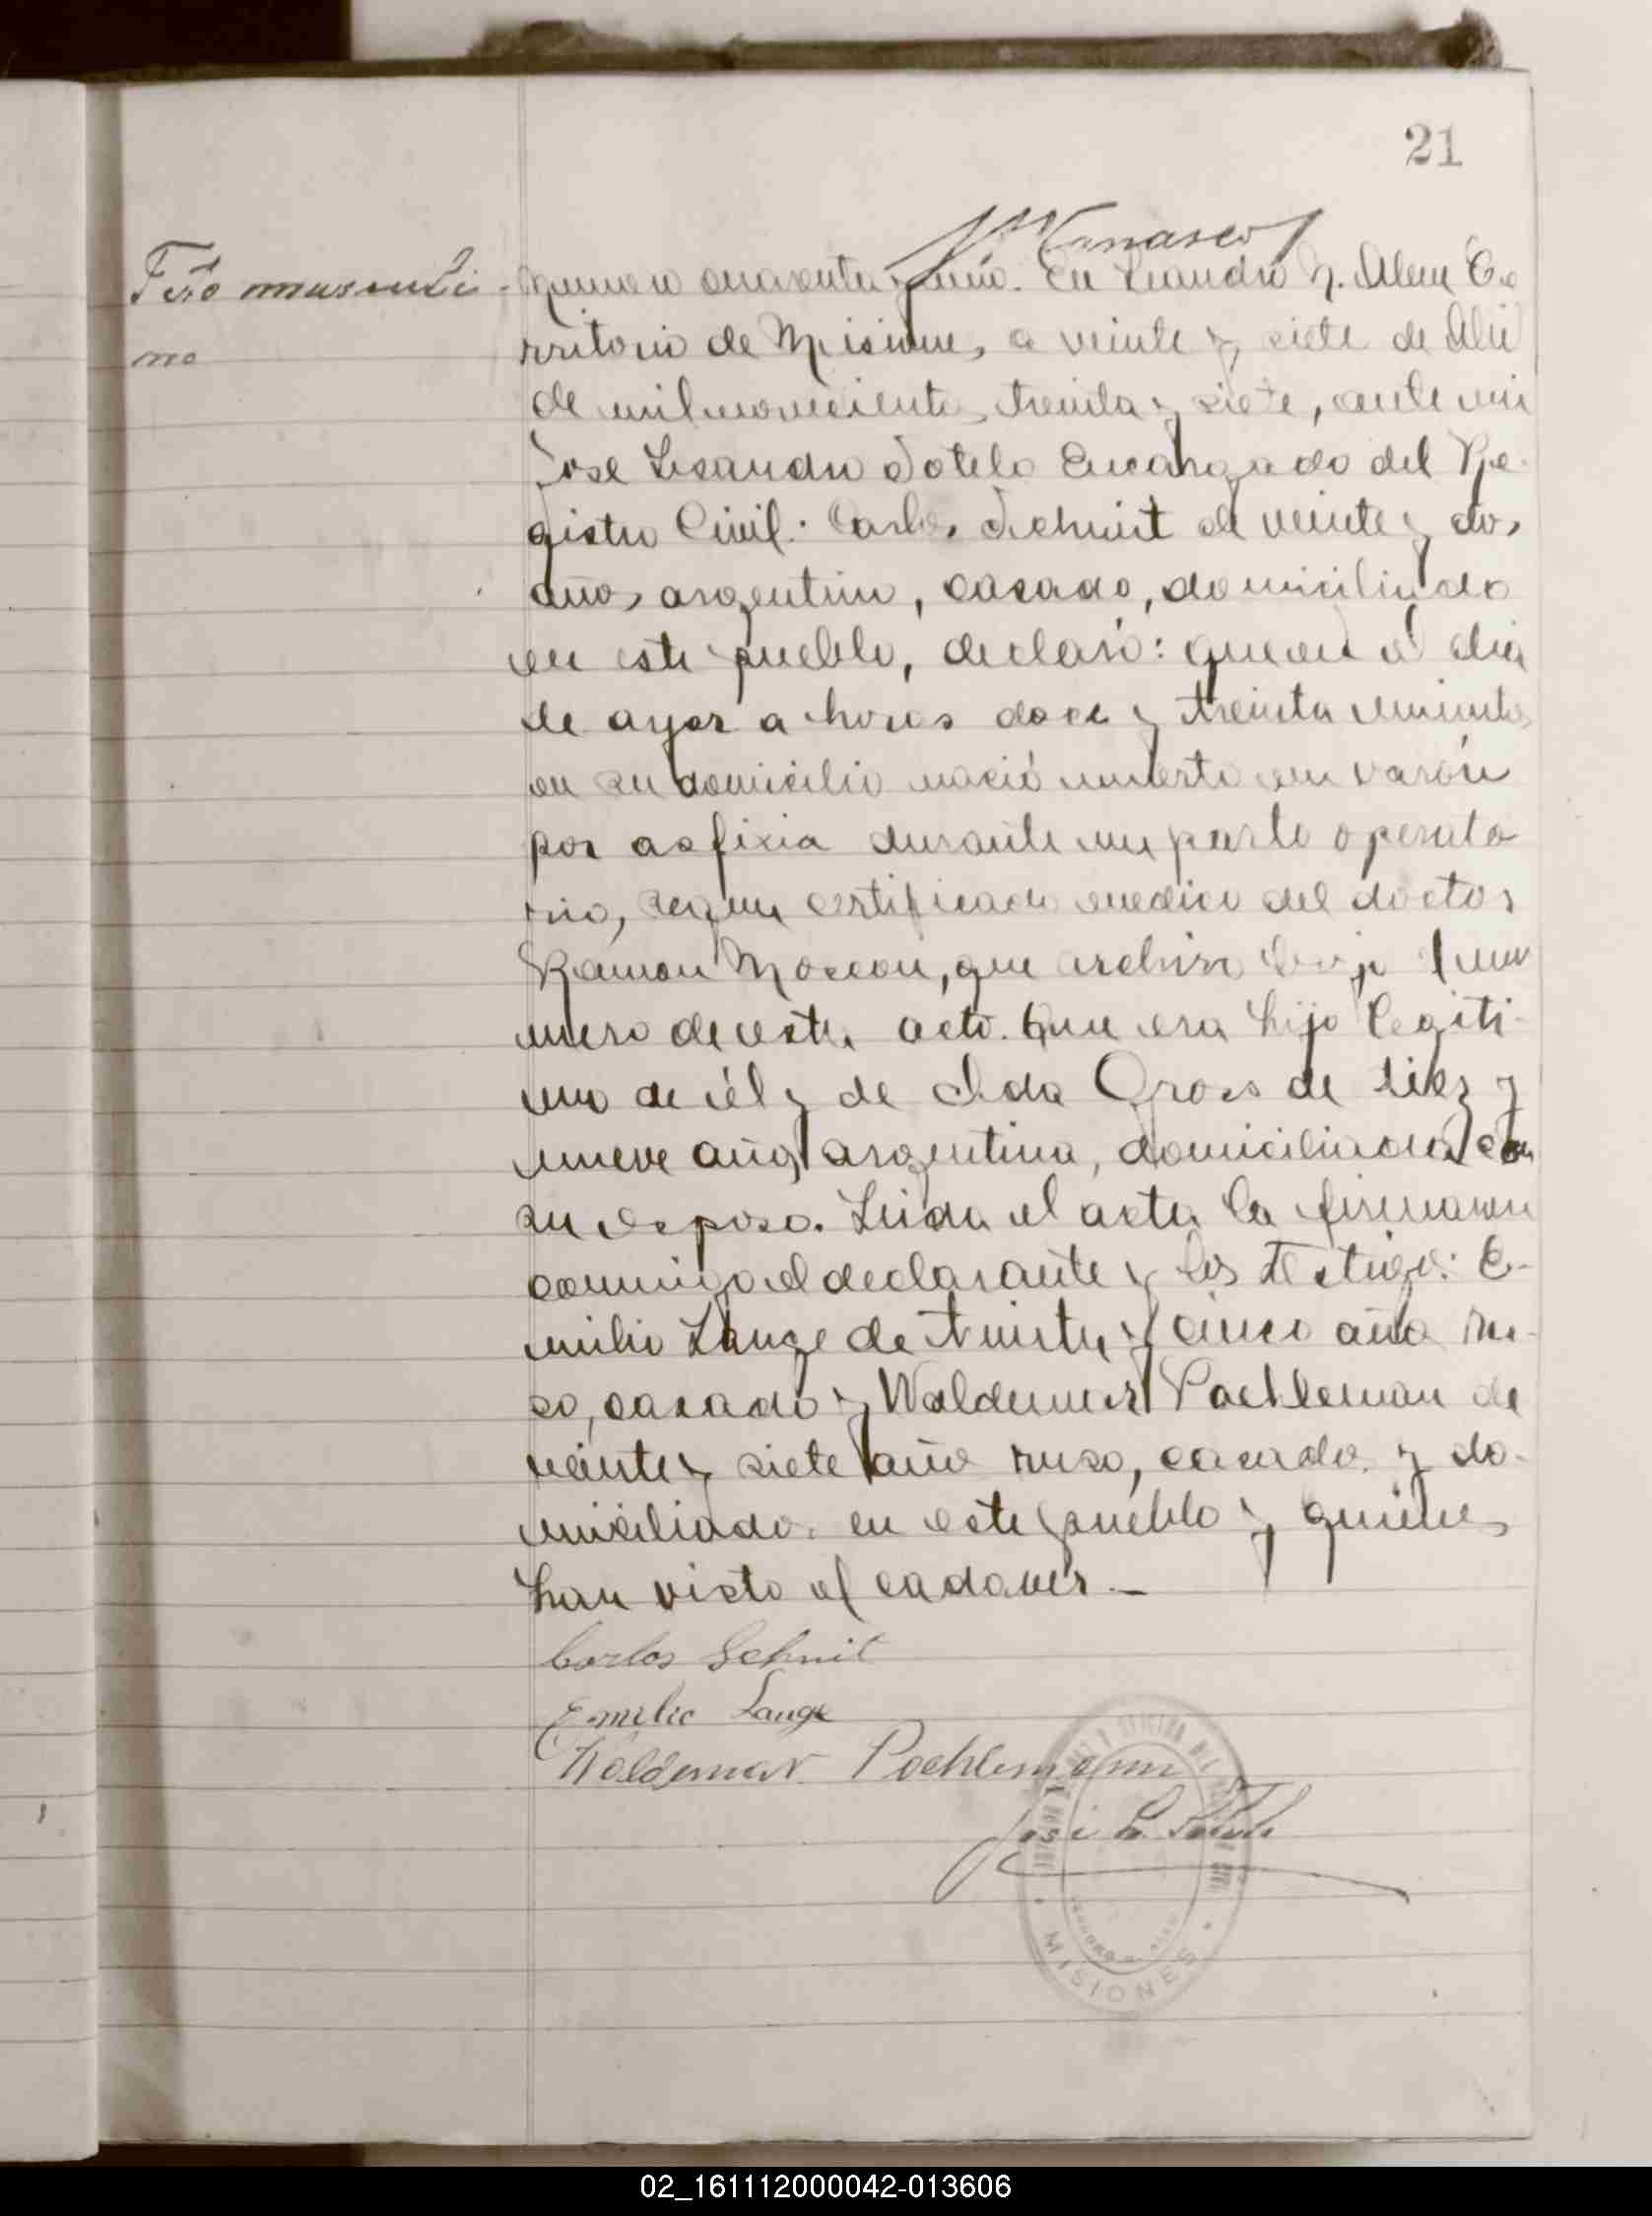 21
Feto masculi-
no
Numero cuarenta y uno. En Leandro N. Alem Te
rritorio de Misiones, a veinte y siete de Abril
de mil novecientos treinta y siete, ante mi
Jose Lisandro Sotelo Encargado del Re-
gistro Civil: Carlos Schmit de veinte y dos
años, argentino, casado, domiciliado
en este pueblo, declaró: que en el dia
de ayer a horas doce y treinta minutos
en su domicilio nació muerto un varón
por asfixia durante un parto operato
rio, segun certificado medico del doctor
Ramon Moscon, que archivo bajo el nu
mero de este acto. Que era hijo legiti-
mo de él y de Ida Gross de diez y
nueve años argentina, domiciliada con
su esposo. Leida el acta la firmaron
conmigo el declarante y los testigos: E-
milio Lange de treinta y cinco años ru-
so, casado y Waldemar Poehleman de
veinte y siete años ruso, casado y do-
miciliados en este pueblo y quienes
han visto el cadaver.—
Carlos Schmit
Emilio Lange
Waldemar Poehlemann
José L. Sotelo
MISIONES
02_161112000042-013606